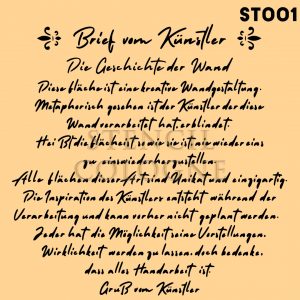 ST001
Brief vom Künstler
Die Geschichte der Wand
Diese fläche ist eine kreative Wandgestaltung.
Metaphorisch gesehen ist der Künstler der diese
Wand verarbeitet hat erblindet
STENCIL
COLOGNE
die fläche ist so wie sie ist nie wieder eins
zu eins wiederherzustellen
Alle flächen dieser Art sind Unikat und einzigartig
Die Inspiration des Künstlers entsteht während der
Verarbeitung und kann vorher nicht geplant werden.
Jeder hat die Möglichkeit seine Vorstellungen,
Wirklichkeit werden zu lassen, doch bedenke,
dass alles Handarbeit ist
Gruß vom Künstler